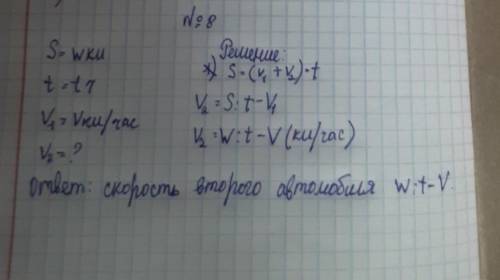 № 8
S = w км
t = t ч
V₁ = Vкм/час
V₂ = ?
Решение:
S = (V₁ + V₂) · t
V₂ = S : t - V₁
V₂ = W : t - V (км/час)
Ответ: скорость второго автомобиля W : t - V.